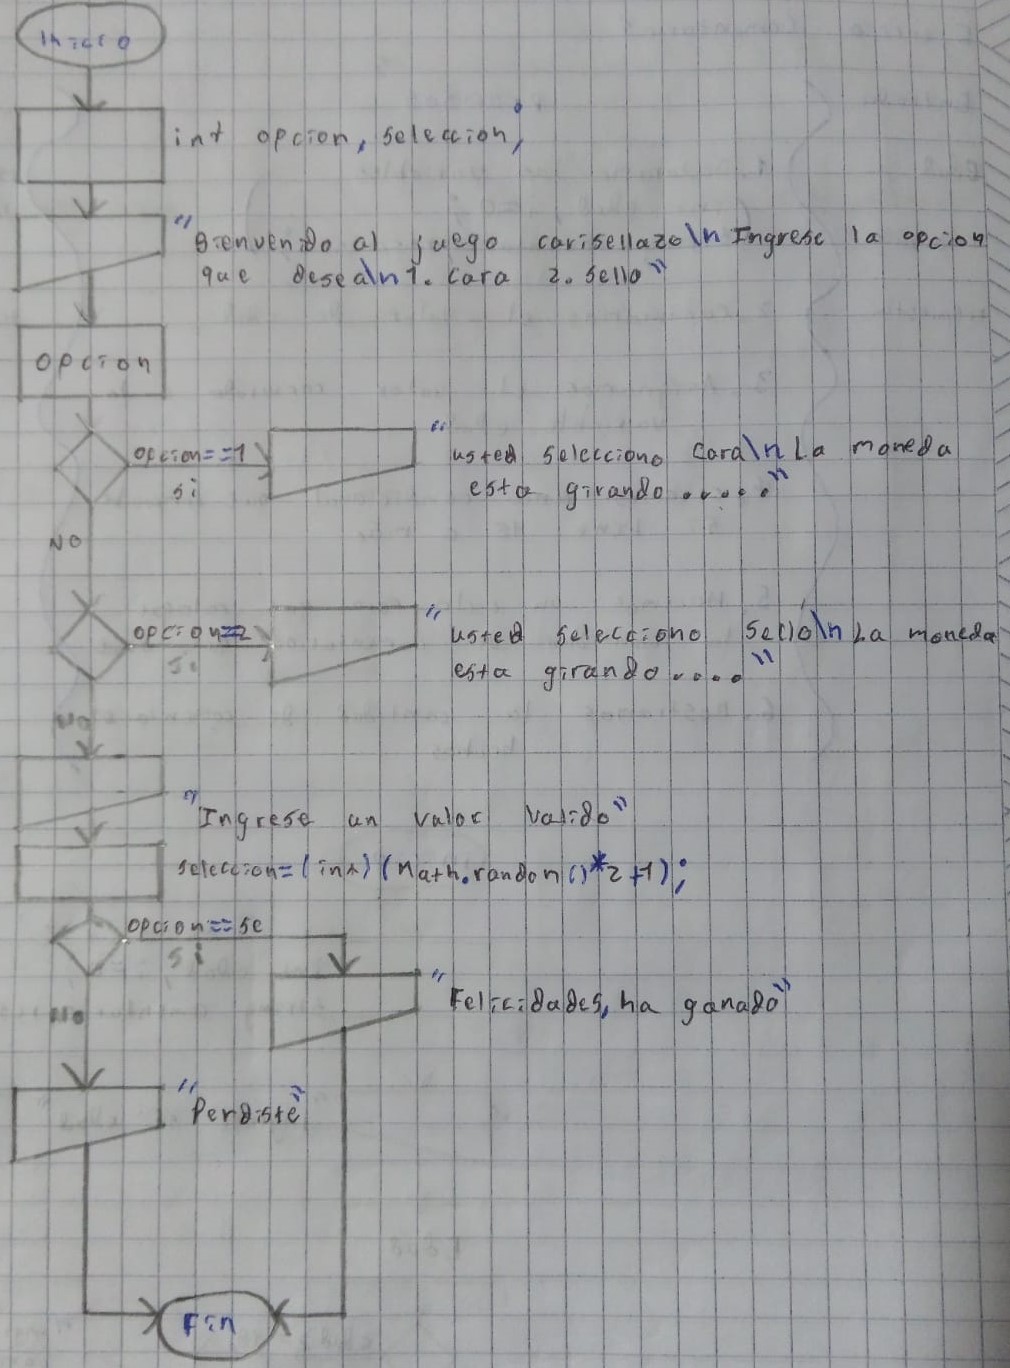 Inicio
int opcion, seleccion;
"Bienvenido al juego carisellazo\n Ingrese la opcion
que desea\n 1. cara 2. sello"
opcion
opcion==1
si
"usted selecciono cara\n La moneda
esta girando ....."
NO
opcion==2
si
"usted selecciono sello\n La moneda
esta girando ...."
NO
"Ingrese un valor valido"
seleccion=(int)(Math.random()*2+1);
opcion==se
si
"Felicidades, ha ganado"
NO
"Perdiste"
Fin